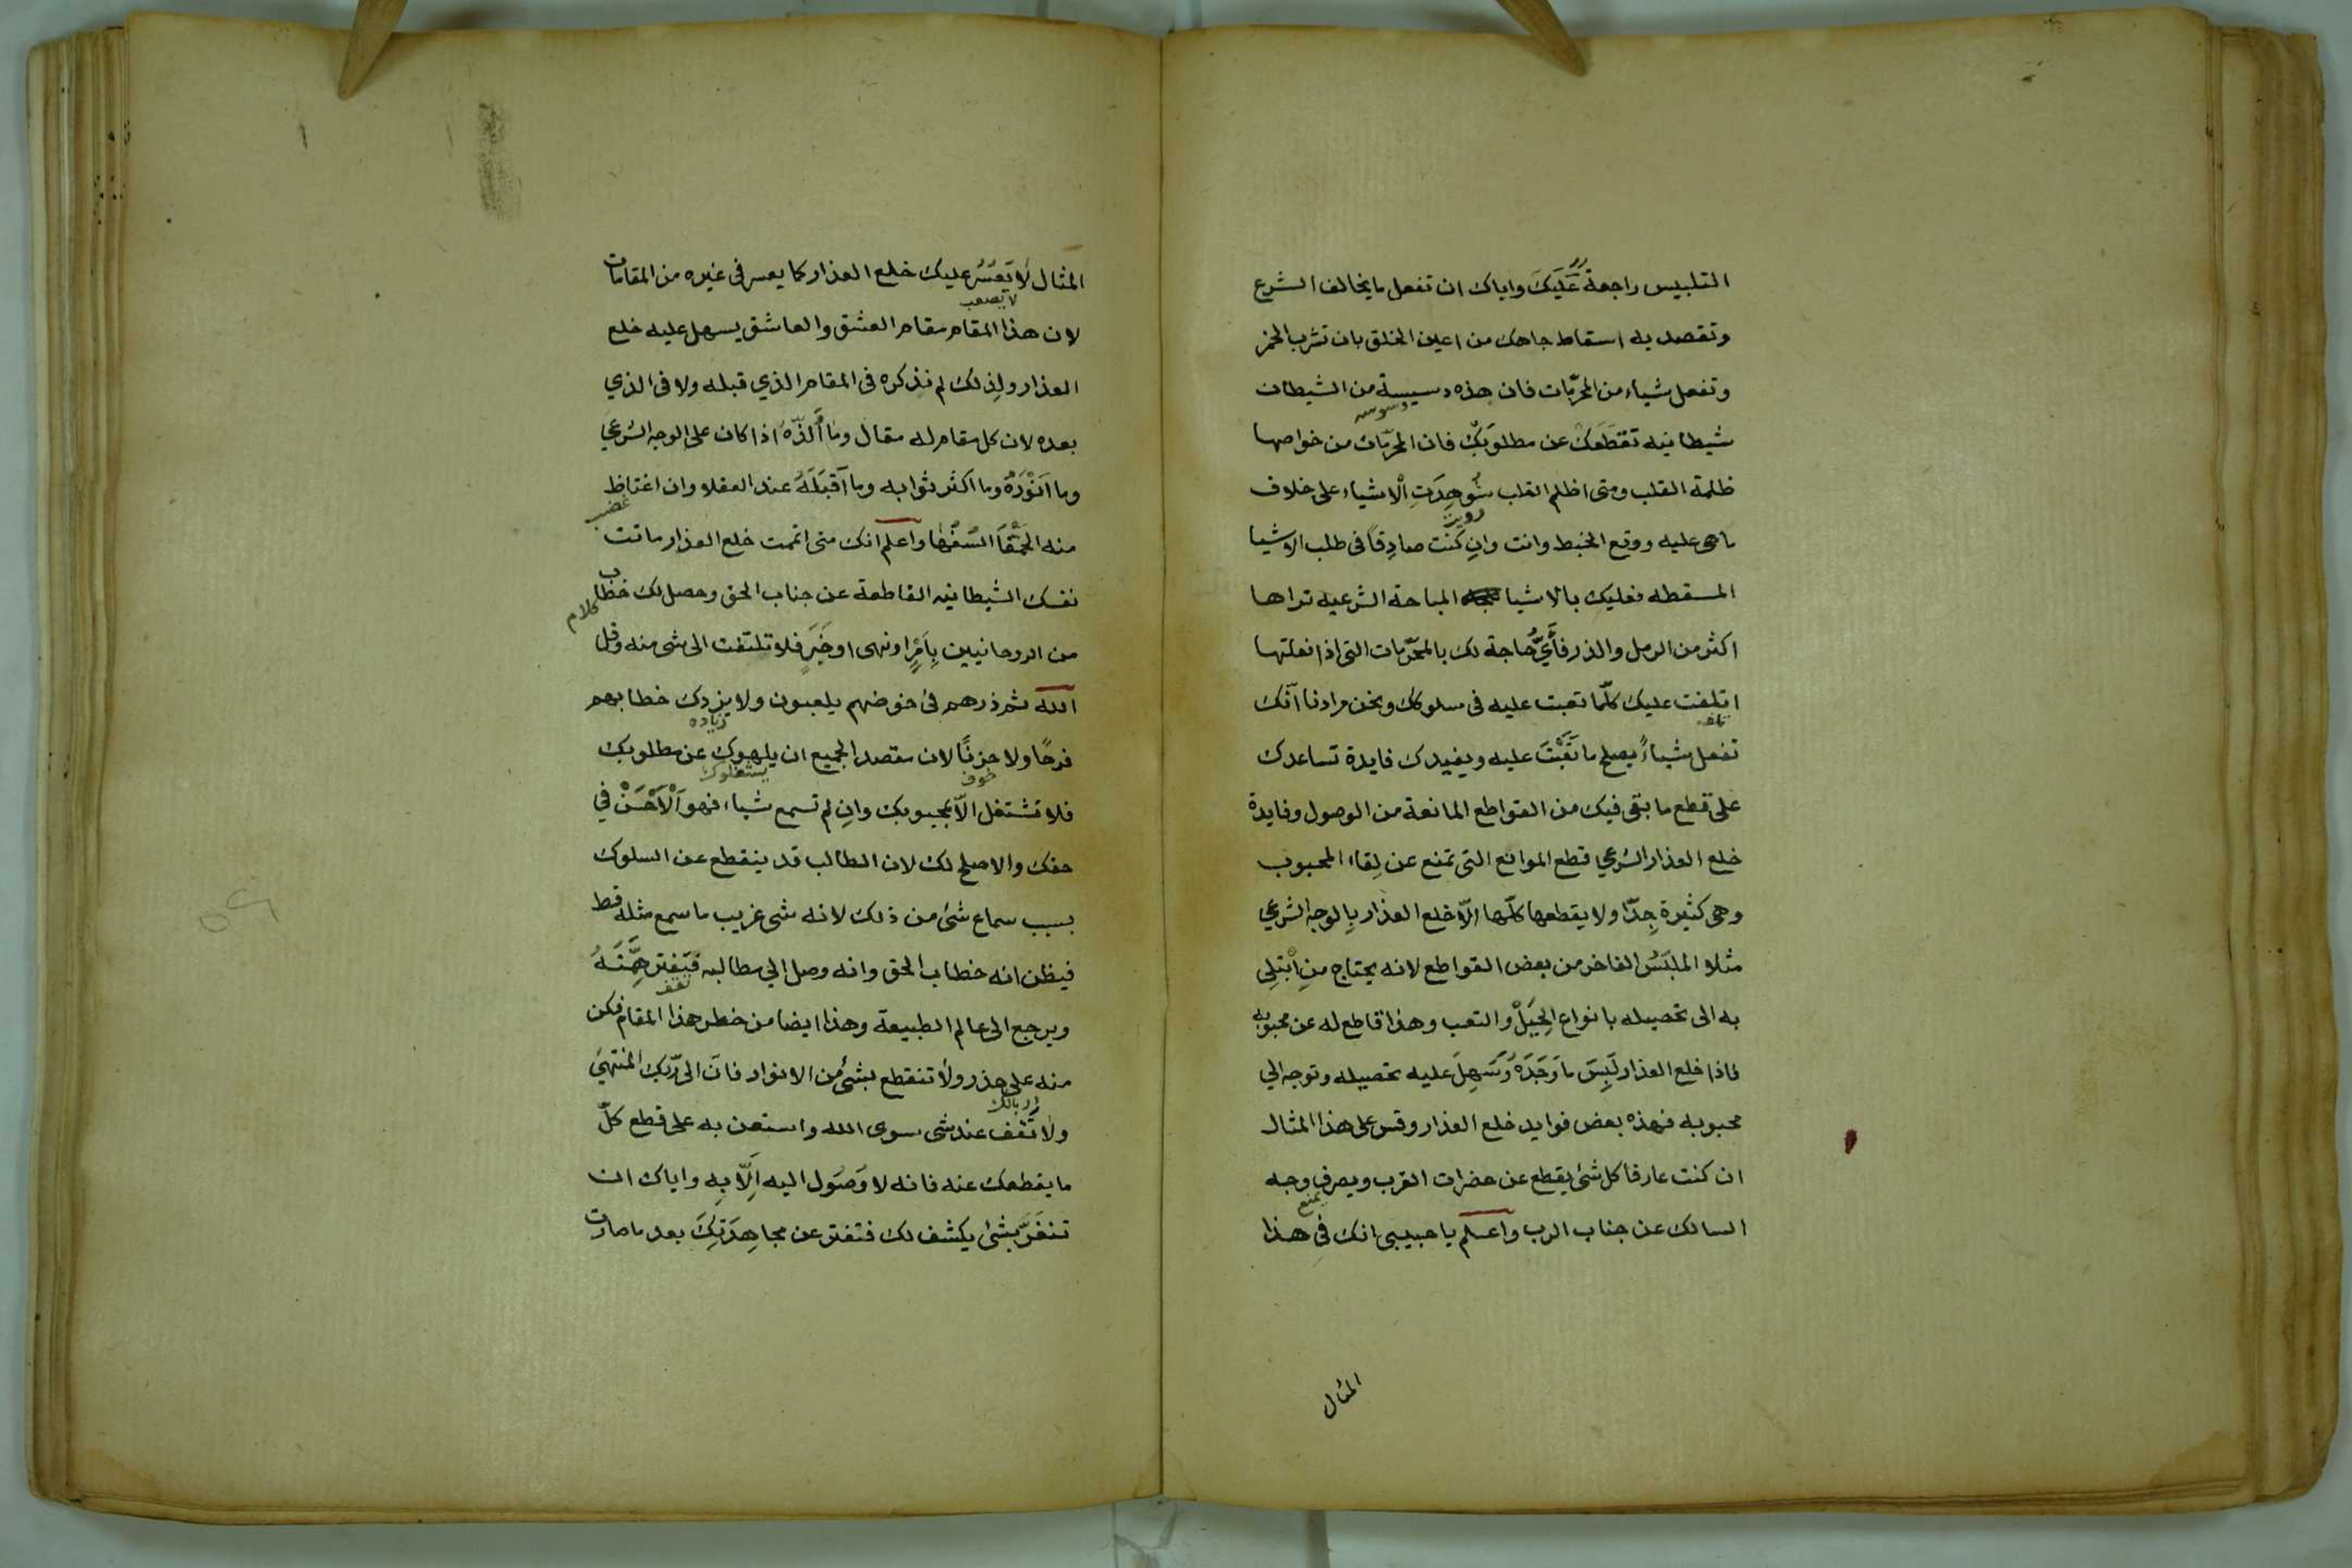 التلبيس راجعة عَلَيكَ واياك ان تفعل ما يخالف الشرع
وتقصد به اسقاط جاهك من اعين الخلق بان تشرب الخمر
وتفعل شياء من المحرّمات فان هذه دسيسة من الشيطان
وسوسه
شيطانيه تقطَعَكَ عن مطلوبَكَ فان المحرّمات من خواصها
ظلمة القلب ومتى اظلم القلب شُوهِدَتِ الْاشياء على خلاف
رويت
ماهى عليه ووقع الخبط وانت وانِ كَنْت صادِقاً فى طلب الاشيا
المسقطه فعليك بالاشيا المباحة الشرعيه تراها
اكثر من الرمل والذر فأَيُّ حاجة لك بالمحَرّمات التى اذا فعلتها
اتلفت عليك كلّما تعبت عليه فى سلوكك ونحن مرادنا اَنّك
تفعل شياءً يصلح ما تَعَبْتَ عليه ويفيدك فايدة تساعدك
على قطع ما بقى فيك من القواطع المانعة من الوصول وفايدة
خلع العذار الشرعي قطع الموانع التى تمنع عن لِقاء المحبوب
وهى كثيرة جِدّا ولا يقطعها كلّها الّا خلع العذار بِالوجه الشرعي
مثلا الملبَسُ الفاخر من بعض القواطع لانه يحتاج منِ اْبتِلى
به الى تحصيله بانواع الحِيَلْ والتعب وهذا قاطع له عن محبوبه
فاذا خلع العذار لَبِسَ مَا وَجَدَهُ وَسَهِلَ عليه تحصيله وتوجه الي
محبوبه فهذه بعض فوايد خلع العذار وقس على هذا المثال
ان كنت عارفا كل شئ يقطع عن حضرات القرب ويصرف وجه
يمنع
السالك عن جناب الرب واعلم يا حبيبى انك فِى هذا
المثال
المثال لَا تَعَسَّرُ عليك خلع العذار كما يعسر فى غيره من المقامات
لا تصعب
لان هذا المقام مقام العشق والعاشق يسهل عليه خلع
العذار ولِذلك لم نذكره فى المقام الذي قبله ولا فى الذي
بعده لان كل مقام له مقال وما أَلَذّهُ اذا كان على الوجه الشرعي
وما اَنْوَرَهُ وما اكثر ثوابه وما اَقبَلَهُ عند العقلا وان اغتاظ
غضب
منه الحَمْقَا السُفهٰا واعلم انك متى اتممت خلع العذار ماتت
نفسك الشيطانيه القاطعة عن جناب الحق وحصل لك خطاب
كلام
من الروحانيين بِاَمرٍ او نهى او خَبَرٍ فلا تلتفت الى شى منه وقل
الله ثم ذرهم فى خوضهم يلعبون ولا يزدك خطابهم
زياده
فرحًا ولا حزنًا لان مقصد الجميع ان يلهوك عن مطلوبك
خوف يشتغلوك
فلا تشتغل الّا بمحبوبك وانِ لم تسمع شياء فهو اَلْاَحْسَنْ في
حقك والاصلح لك لان الطالب قد ينقطع عن السلوك
بسبب سماع شئ من ذلك لانه شى غريب ما سمع مثله قط
فيظن انه خطاب الحق وانه وصل الي مطالبه فَيَفتر هِمَّتَهُ
تقف
ويرجع الى عالم الطبيعة وهذا ايضا من خطر هذا المقام فكن
منه على حذر ولا تنقطع بشئ من الانوار فانّ الى رّبك المنتهىَ
رد بالك
ولا تقف عند شى سوى الله واستعن به على قطع كلّ
ما يقطعك عنه فانه لا وَصُول اليه اِلّا بِه واياك ان
تنغَرَّ بشئ يكشف لك فتفتر عن مجاهِدَتِكَ بعد ما صارت